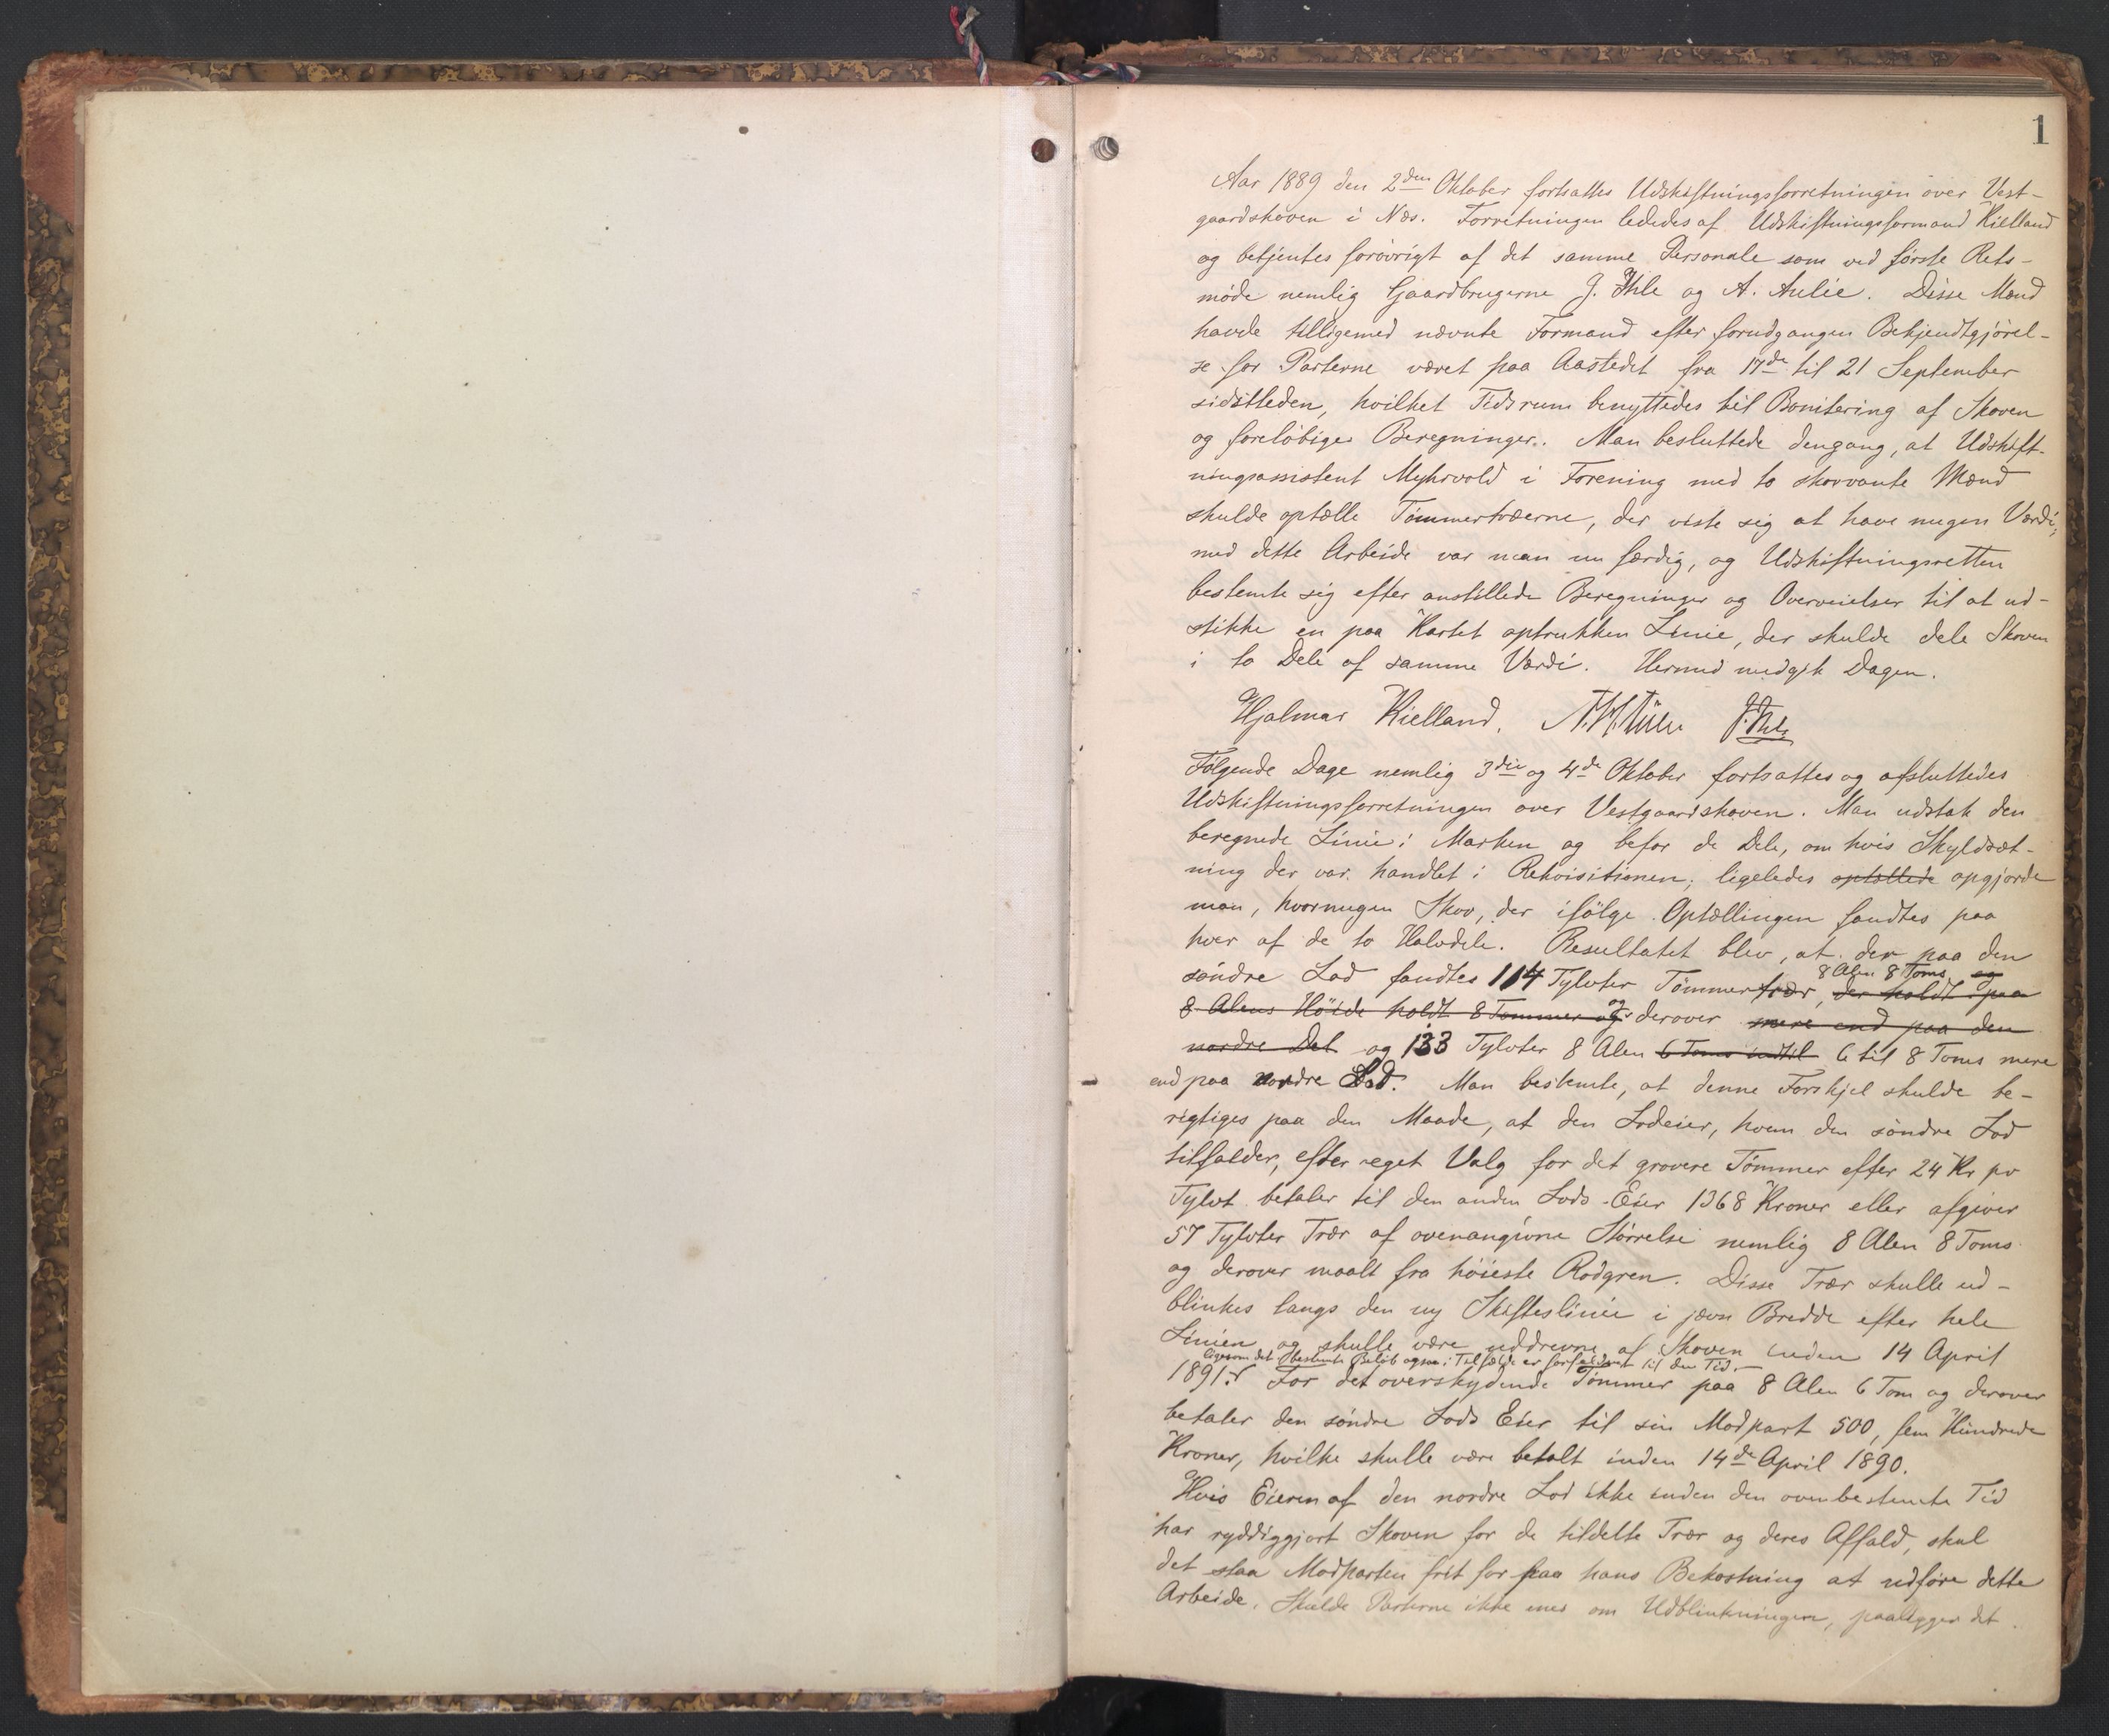 1
Aar 1889 den 2den Oktober fortsattes Udskiftningsforretningen over Vest-
gaardskoven i Næs. Forretningen lededes af Udskiftningsformand Kielland
og betjentes forøvrigt af det samme Personale som ved første Rets-
møde nemlig Gaardbrugerne J. Ihle og A. Aulie. Disse Mænd
havde tilligemed nævnte Formand efter forudgangen Bekjendtgjørel-
se for Parterne været paa Aastedet fra 17de til 21 September
sidstleden, hvilket Tidsrum benyttedes til Bonitering af Skoven
og foreløbige Beregninger. Man besluttede dengang, at Udskift-
ningsassistent Myhrvold i Forening med to skovvante Mænd
skulde optælle Tømmertræerne, der viste sig at have megen Værdi;
med dette Arbeide var man nu færdig, og Udskiftningsretten
bestemte sig efter anstillede Beregninger og Overveielser til at ud-
stikke en paa Kartet optrukken Linie, der skulde dele Skoven
i to Dele af samme Værdi. Hermed medgik Dagen.
Hjalmar Kielland. J. Ihle
Følgende Dage nemlig 3die og 4de Oktober fortsattes og afsluttedes
Udskiftningsforretningen over Vestgaardskoven. Man udstak den
beregnede Linie i Marken og befor de Dele, om hvis Skyldsæt-
ning der var handlet i Rekvisitionen; ligeledes optællede opgjorde
man, hvormegen Skov, der ifølge Optællingen fandtes paa
hver af de to Halvdele. Resultatet blev, at der paa den
søndre Lod fandtes 114 Tylvter Tømmertrær, der holdt paa
8 Alen 8 Toms og
8 Alens Høide holdt 8 Tommer og derover mere end paa den
nordre Del og 133 Tylvter 8 Alen 6 Toms indtil 6 til 8 Toms mere
end paa nordre Lod. Man bestemte, at denne Forskjel skulde be-
rigtiges paa den Maade, at den Lodeier, hvem den søndre Lod
tilfalder, efter eget Valg for det grovere Tømmer efter 24 Kr pr
Tylvt betaler til den anden Lods-Eier 1368 Kroner eller afgiver
57 Tylvter Trær af ovenangivne Størrelse nemlig 8 Alen 8 Toms
og derover maalt fra høieste Rodgren. Disse Trær skulle ud-
blinkes langs den ny Skifteslinie i jævn Bredde efter hele
Linien og skulle være uddrevne af Skoven inden 14 April
ligesom det bestemte Beløb ogsaa i Tilfælde er forfaldent til den Tid.
1891. For det overskydende Tømmer paa 8 Alen 6 Tom og derover
betaler den søndre Lods Eier til sin Modpart 500, fem Hundrede
Kroner, hvilke skulle være betalt inden 14de April 1890.
Hvis Eieren af den nordre Lod ikke inden den ovenbestemte Tid
har ryddiggjort Skoven for de tildelte Trær og deres Affald, skal
det staa Modparten frit for paa hans Bekostning at udføre dette
Arbeide. Skulde Parterne ikke enes om Udblinkningen, paalægger det